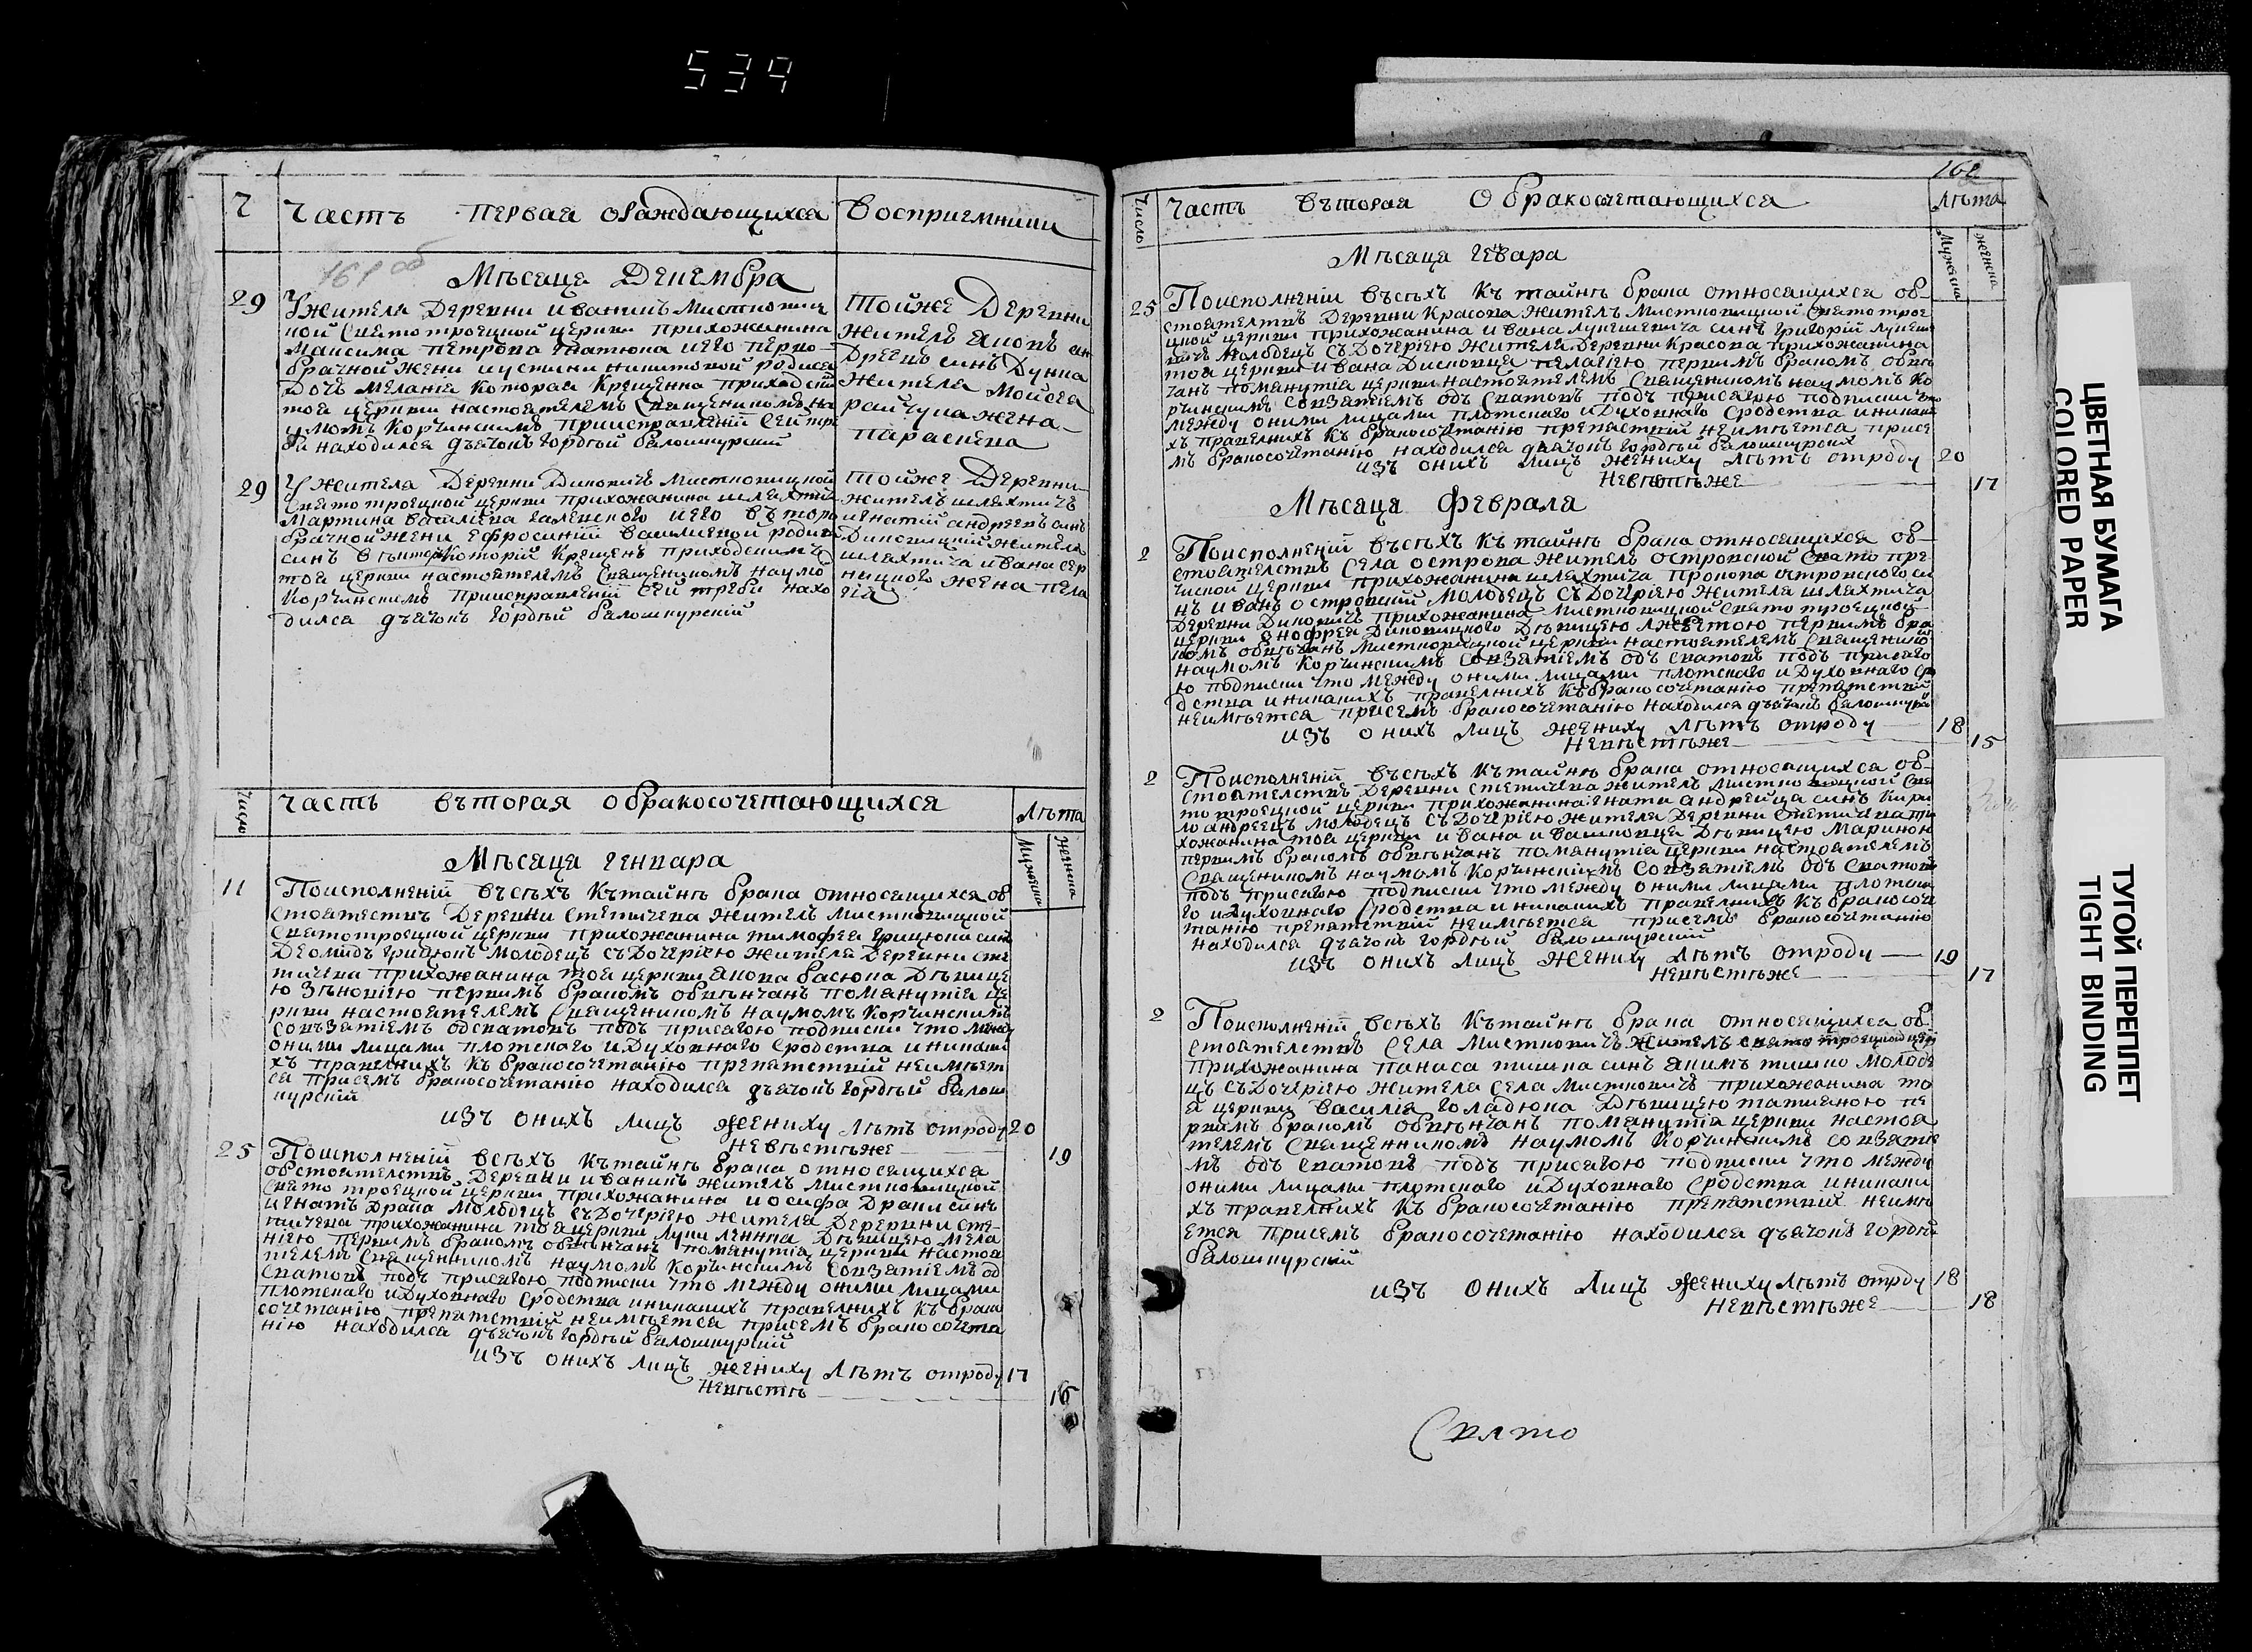 539
Ч Частъ первая ораждающихся Восприемники
161 об
Мѣсаца Декемвра
29 Ужителя Деревни иваникъ Мистковиц
кой Святотроецкой церкви прихожанина
Максима петрова его перво-
брачной жени иустини никитовой родися
Дочъ меланія которая Крещенна приходски
тоя церкви настоятелемъ Священикомъ на
умомъ Корчинскимъ приисправленій Сей тре
би находился дъячокъ Гордѣй балошкурский
тойже Деревни
житель яковъ ан
дреевъ синъ Дунка
жителя Мойсея
райчука жена
параскева
29 У жителя Деревни Диковичъ Мистковицкой
Святотроецкой церкви прихожанина шляхтича
Мартина василіева галенского иего въторо
брачной жени Ефросиній василиевой родися
синъ викторъ Которій Крещенъ приходскимъ
тоя церкви настоятелемъ Священикомъ наумо
Корчинскимъ приисправленій Сей треби нахо
дился дъячокъ Гордѣй балошкурскій
тойже Деревни
житель шляхтичъ
игнатій андреевъ синъ
Диковицкій жителя
шляхтича ивана сер
ницкого жена пела
гія
Число Частъ въторая обракосочетающихся Лѣта
Мужеска Женска
Мѣсаца Генвара
11 Поисполненій въсѣхъ Кътайнѣ брака относящихся об
стоятелствъ Деревни Стетичева Жителъ мистковицкой
Святотроецкой церкви прихожанина тимофея грицюка синъ
Деомидъ грицюкъ Молодецъ съДочерію жителя Деревни сте
тичева прихожанина тоя церкви якова басюка Дѣвице
ю Зѣновією первимъ бракомъ обвѣнчанъ поманутія це
ркви настоятелемъ Священикомъ наумомъ Корчинскимъ
Совъзятіемъ одсватовъ подъ присягою подписки что между
оними лицами плотскаго иДуховнаго Сродства иникаки
хъ правелнихъ къ бракосочетанію препятствій неимѣет
ся присемъ бракосочетанію находился дъячокъ Гордѣй балош
курскій
изъ онихъ лицъ жениху лѣтъ отроду 20
Невѣстѣже 19
25 Поисполненій всѣхъ Кътайнѣ брака относящихся
обстоятелствъ Деревни иваникъ житель мистковицкой
Свято троецкой церкви прихожанина иосифа Драки синъ
игнатъ Драка молодецъ съДочерію жителя Деревни сте-
тичева прихожанина тоя церкви луки Дѣвицею мела
нією первимъ бракомъ обвѣнчанъ поманутія церкви настоя
телемъ Священникомъ наумомъ Корчинскимъ Совзятіемъ од
сватовъ подъ присягою подписки что между оними лицами
плотскаго иДуховнаго Сродства иникакихъ правелнихъ къ брако
сочетанію препятствій неимѣется присемъ бракосочета
нію находился дъячокъ Гордѣй балошкурскій
изъ онихъ лицъ жениху лѣтъ отроду 17
Невѣстѣ 16
162
Число Частъ въторая Обракосочетающихся Лѣта
Мужеска женска
Мѣсаца Генвара
25 Поисполненій въсѣхъ Къ тайнѣ брака относящихся об-
стоятелствъ Деревни Красова житель Мистковицкой Святотрое
цкой церкви прихожанина ивана лукешевича синъ григорій лукеше
вичъ Молодецъ съДочерію жителя Деревни Красова прихожанина
тоя церкви ивана Дисковца пелагією первимъ бракомъ обвѣн
чанъ поманутія церкви настоятелемъ Священикомъ наумомъ Ко
рчинскимъ совзятіемъ одъ Сватовъ подъ присягою подписки что
между оними лицами плотскаго иДуховнаго Сродства иникаки
хъ правелнихъ къ бракосочетанію препятствій неимѣется присе
мъ бракосочетанію находился дъячокъ Гордѣй балошкурскій
изъ онихъ лицъ жениху лѣтъ отроду 20
Невѣстѣже 17
Мѣсаца Февраля
2 Поисполненій въсѣхъ Къ тайнѣ брака относящихся об-
стоятелствъ Села острова житель островской Свято пре
чиской церкви прихожанина шляхтича прокопа островского си
нъ иванъ островский молодецъ съДочерію жителя шляхтича
Деревни Диковичъ прихожанина мистковицкой Свято троецкой
церкви онофрея Диковицкого Дѣвицею первимъ бра
комъ обвѣнчанъ мистковицкой церкви настоятелемъ Священико
наумомъ Корчинскимъ совзятіемъ одъ сватовъ подъ присяго
ю подписки что между оними лицами плотскаго иДуховнаго сро
дства иникакихъ правелнихъ къбракосочетанію препятствий
неимѣется присемъ бракосочетанію находился дъячокъ балошкурский
изъ онихъ лицъ жениху лѣтъ отроду 18
Невѣстѣже 15
2 Поисполненій въсѣхъ Кътайнѣ брака относящихся об-
стоятелствъ Деревни Стетичева житель мистковицкой Свя
то троецкой церкви прихожанина игнати андрейца синъ Кири
ло андреецъ молодецъ съДочерію жителя Деревни Стетичева при
хожанина тоя церкви ивана ивашковца Дѣвицею Мариною
первимъ бракомъ обвѣнчанъ поманутія церкви настоятелемъ
Священикомъ наумомъ Корчинскимъ Совзятіемъ одъ Сватовъ
подъ присягою подписки что между оними лицами плотска
го иДуховнаго Сродства иникакихъ правелнихъ къ бракосоче
танію препятствій неимѣется присемъ бракосочетанию
находился дъячокъ Гордѣй балошкурский
изъ онихъ лицъ жениху лѣтъ отроду 19
Невѣстѣже 17
2 Поисполненій всѣхъ Кътайнѣ брака относящихся об-
стоятелствъ Села мистковичъ житель свято троецкой цер
прихожанина панаса тишка синъ якимъ тишко молоде
цъ съДочерію жителя Села мистковичъ прихожанина то
я церкви Василія голадюка Дѣвицею татианою пе
рвимъ бракомъ обвѣнчанъ поманутія церкви настоя
телемъ Священникомъ наумомъ Корчинскимъ совзятіе
мъ одъ сватовъ подъ присягою подписки что между
оними лицами плотскаго иДуховнаго Сродства иникаки
хъ правелнихъ къ бракосочетанію препятствий неимѣ
ется присемъ бракосочетанію находился дъячокъ гордѣй
балошкурский
изъ онихъ лицъ жениху лѣтъ отроду 18
Невѣстѣже 18
Свято
ЦВЕТНАЯ БУМАГА
COLORED PAPER
ТУГОЙ ПЕРЕПЛЕТ
TIGHT BINDING